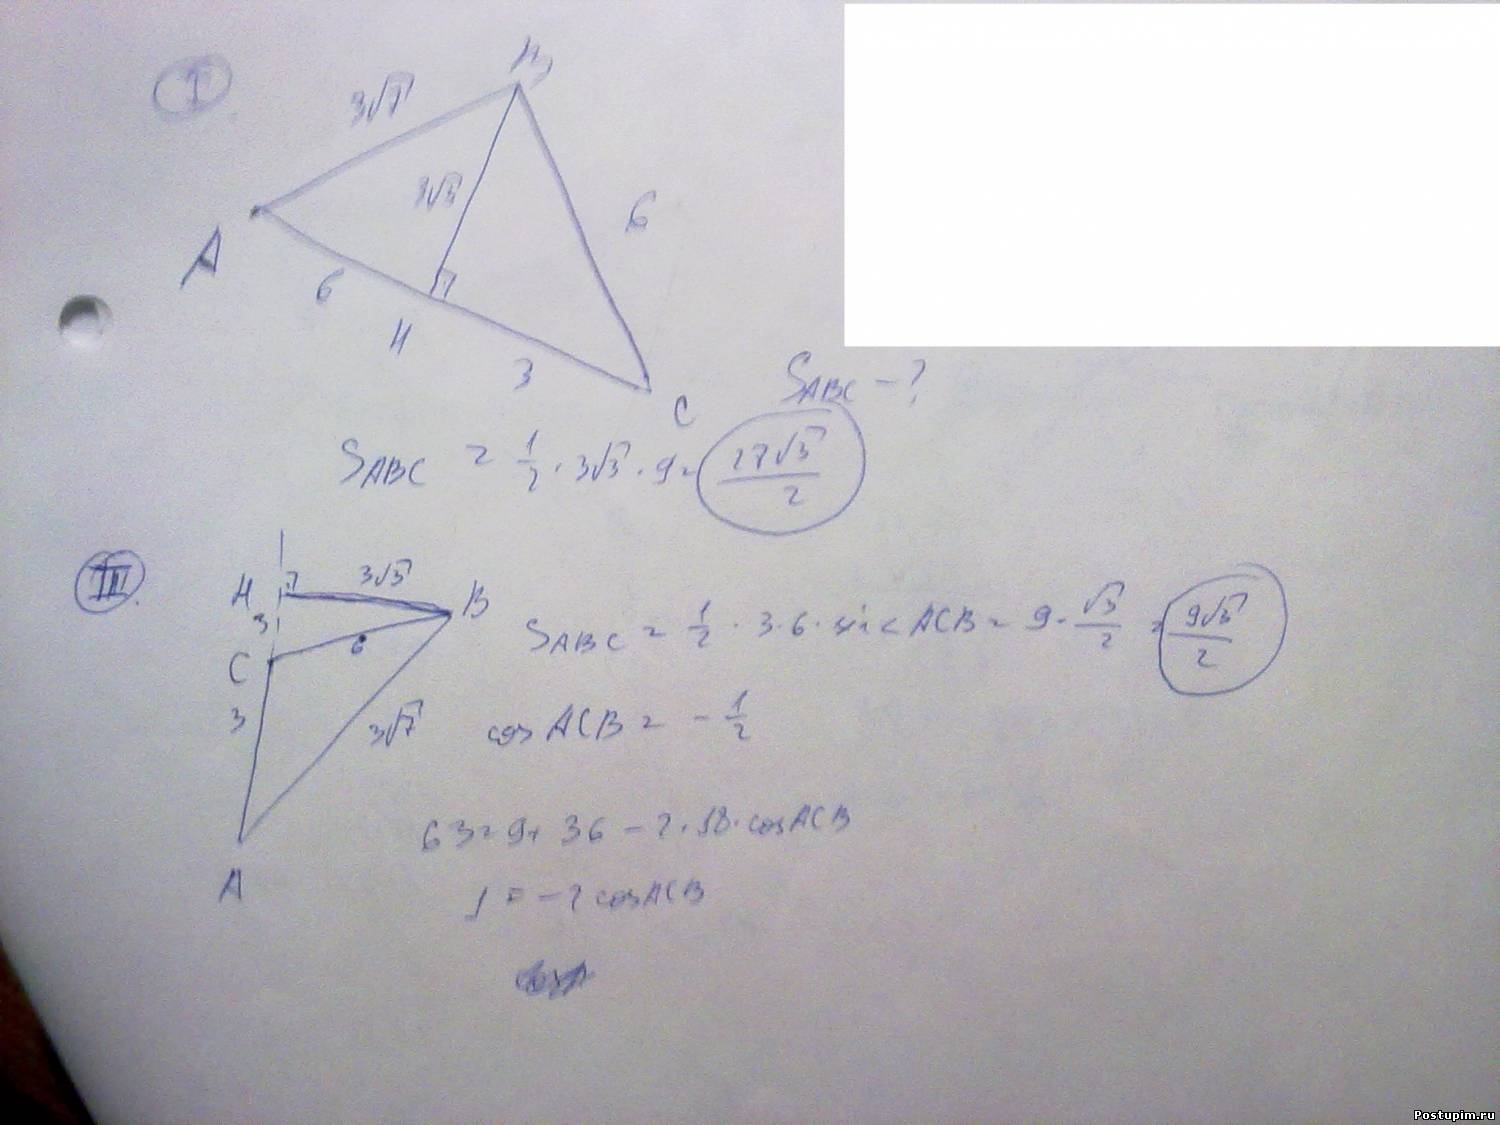 I
B
3√7
3√3
6
A
6
H
3
C
S_ABC - ?
S_ABC = 1/2 · 3√3 · 9 = 27√3/2
III.
H
3√3
B
3
6
C
3
3√7
A
S_ABC = 1/2 · 3 · 6 · sin < ACB = 9 · √3/2 = 9√3/2
cos ACB = - 1/2
63 = 9 + 36 - 2 · 18 · cos ACB
1 = - 2 cos ACB
Postupim.ru